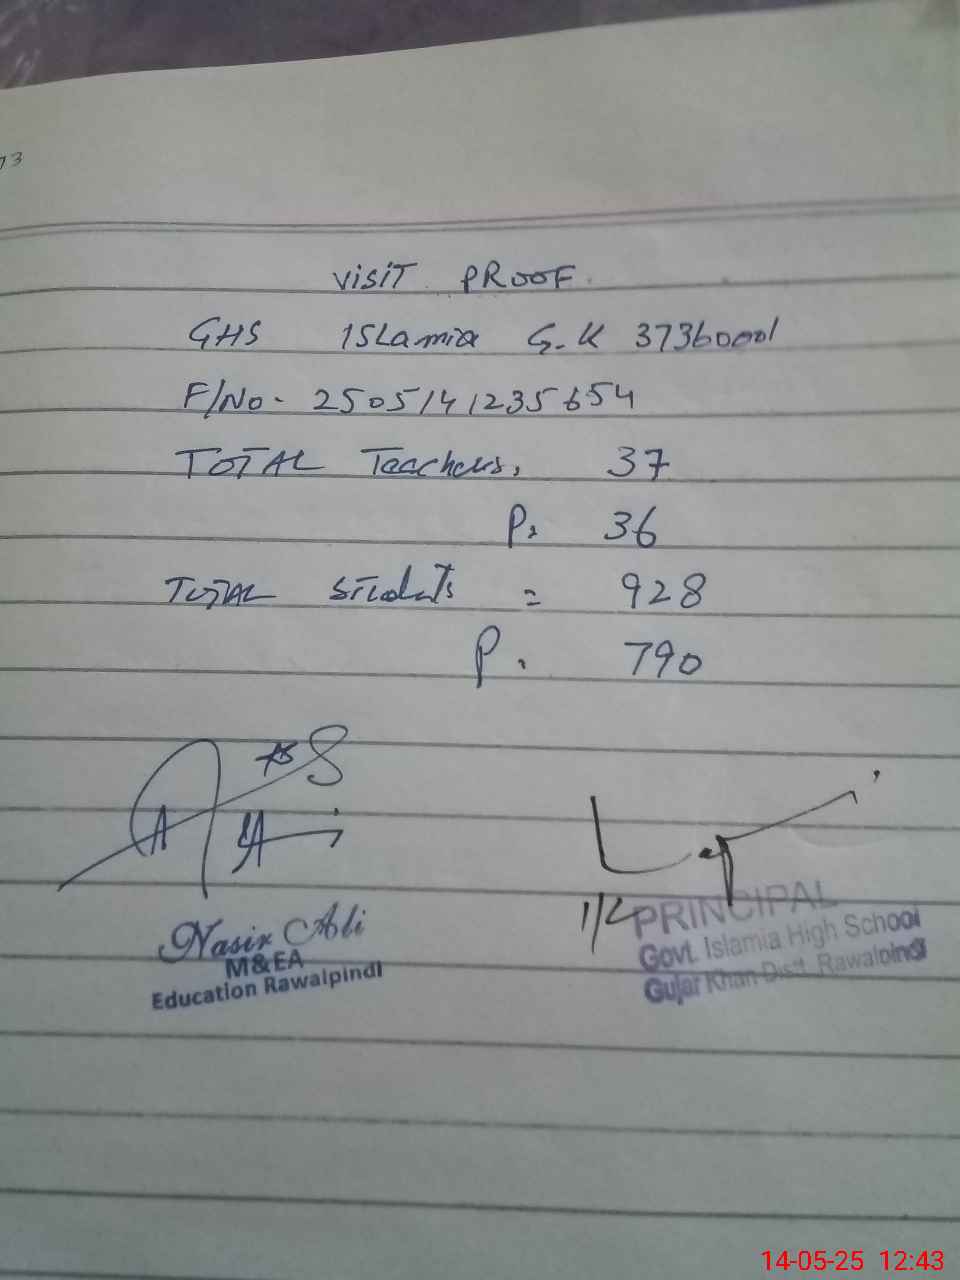 73
VISIT PROOF.
GHS ISLamia G.K 37360001
F/No- 2505141235654
TOTAL Teachers, 37
P. 36
TOTAL Students = 928
P. 790
Nasir Ali
M&EA
Education Rawalpindi
I/C PRINCIPAL
Govt. Islamia High School
Gujar Khan Distt. Rawalpindi
14-05-25 12:43